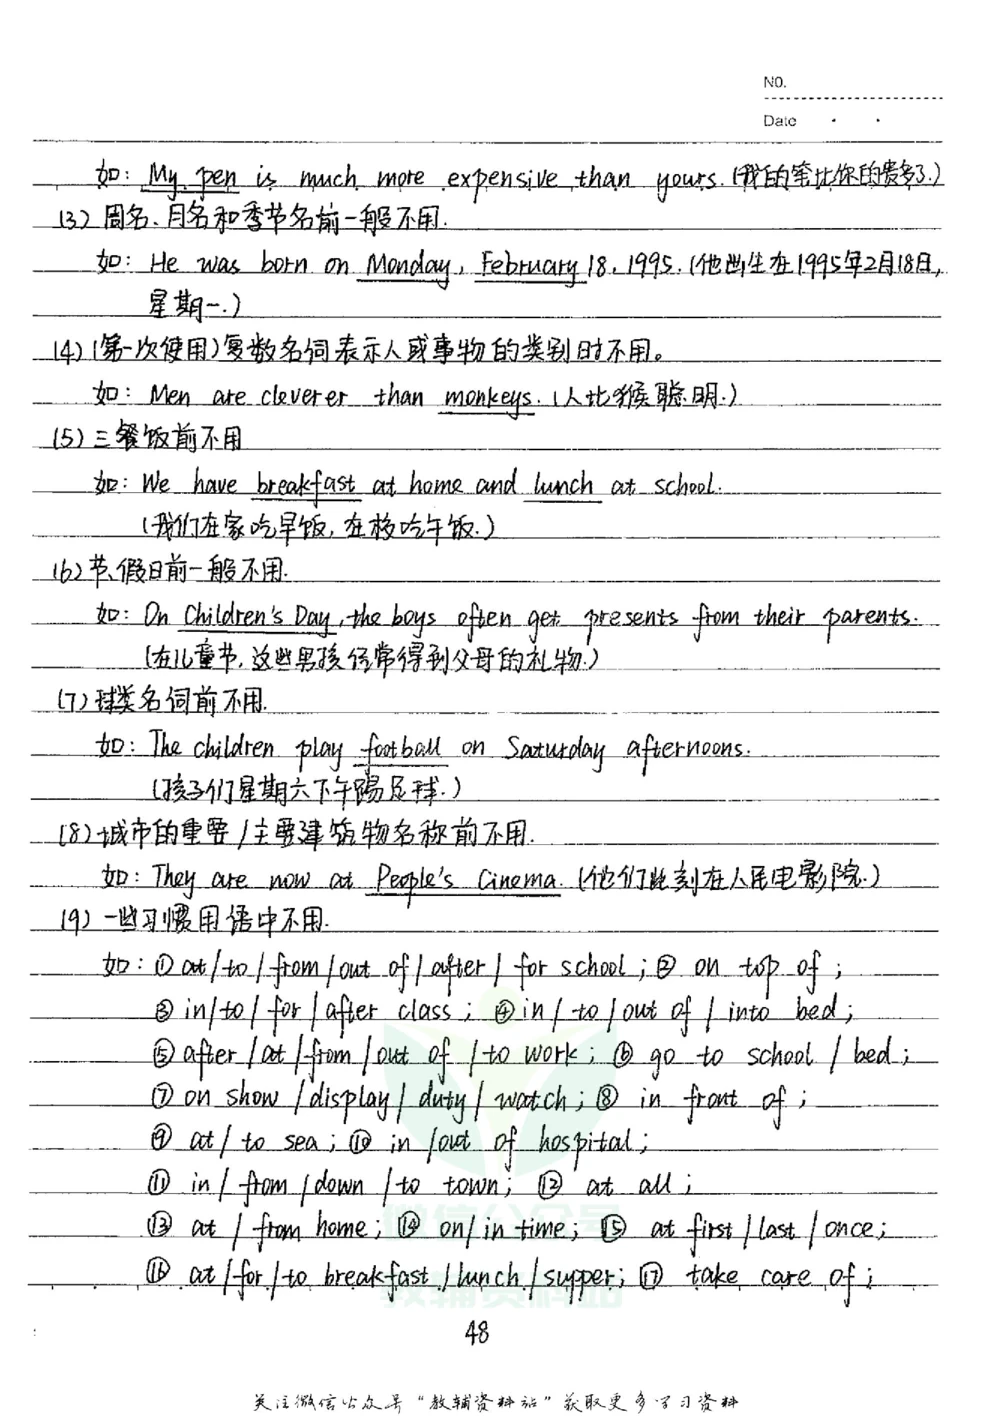 NO.
Date
如: My pen is much more expensive than yours. (我的笔比你的贵多了.)
(3) 周名、月名和季节名前一般不用.
如: He was born on Monday, February 18, 1995. (他出生在1995年2月18日,
星期一.)
(4) (第一次使用)复数名词表示人或事物的类别时不用。
如: Men are cleverer than monkeys. (人比猴聪明.)
(5) 三餐饭前不用
如: We have breakfast at home and lunch at school.
(我们在家吃早饭, 在校吃午饭.)
(6) 节、假日前一般不用.
如: On Children's Day, the boys often get presents from their parents.
(在儿童节, 这些男孩经常得到父母的礼物.)
(7) 球类名词前不用.
如: The children play football on Saturday afternoons.
(孩子们星期六下午踢足球.)
(8) 城市的重要/主要建筑物名称前不用.
如: They are now at People's Cinema. (他们此刻在人民电影院.)
(9) 一些习惯用语中不用.
如: ① at/to/from/out of/after/for school; ② on top of;
③ in/to/for/after class; ④ in/to/out of/into bed;
⑤ after/at/from/out of/to work; ⑥ go to school/bed;
⑦ on show/display/duty/watch; ⑧ in front of;
⑨ at/to sea; ⑩ in/out of hospital;
⑪ in/from/down/to town; ⑫ at all;
⑬ at/from home; ⑭ on/in time; ⑮ at first/last/once;
⑯ at/for/to breakfast/lunch/supper; ⑰ take care of;
微信公众号
教辅资料站
48
关注微信公众号“教辅资料站”获取更多学习资料